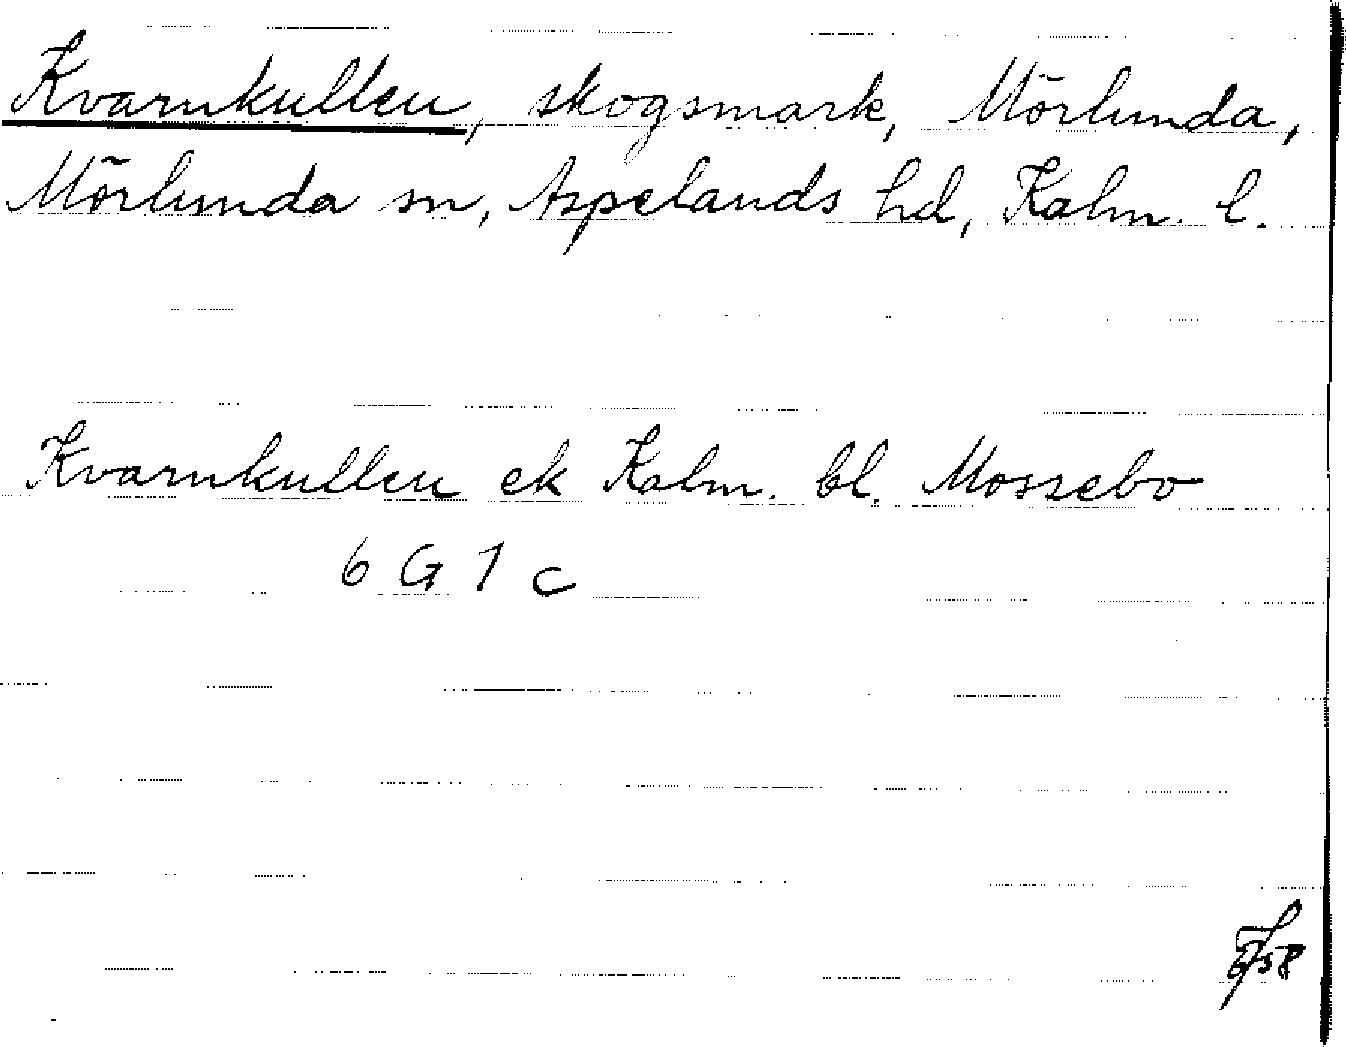 Kvarnkullen, skogsmark, Mörlunda,
Mörlunda sn, Aspelands hd, Kalm. l.
Kvarnkullen ek Kalm. bl. Mossebo
6 G 1 c